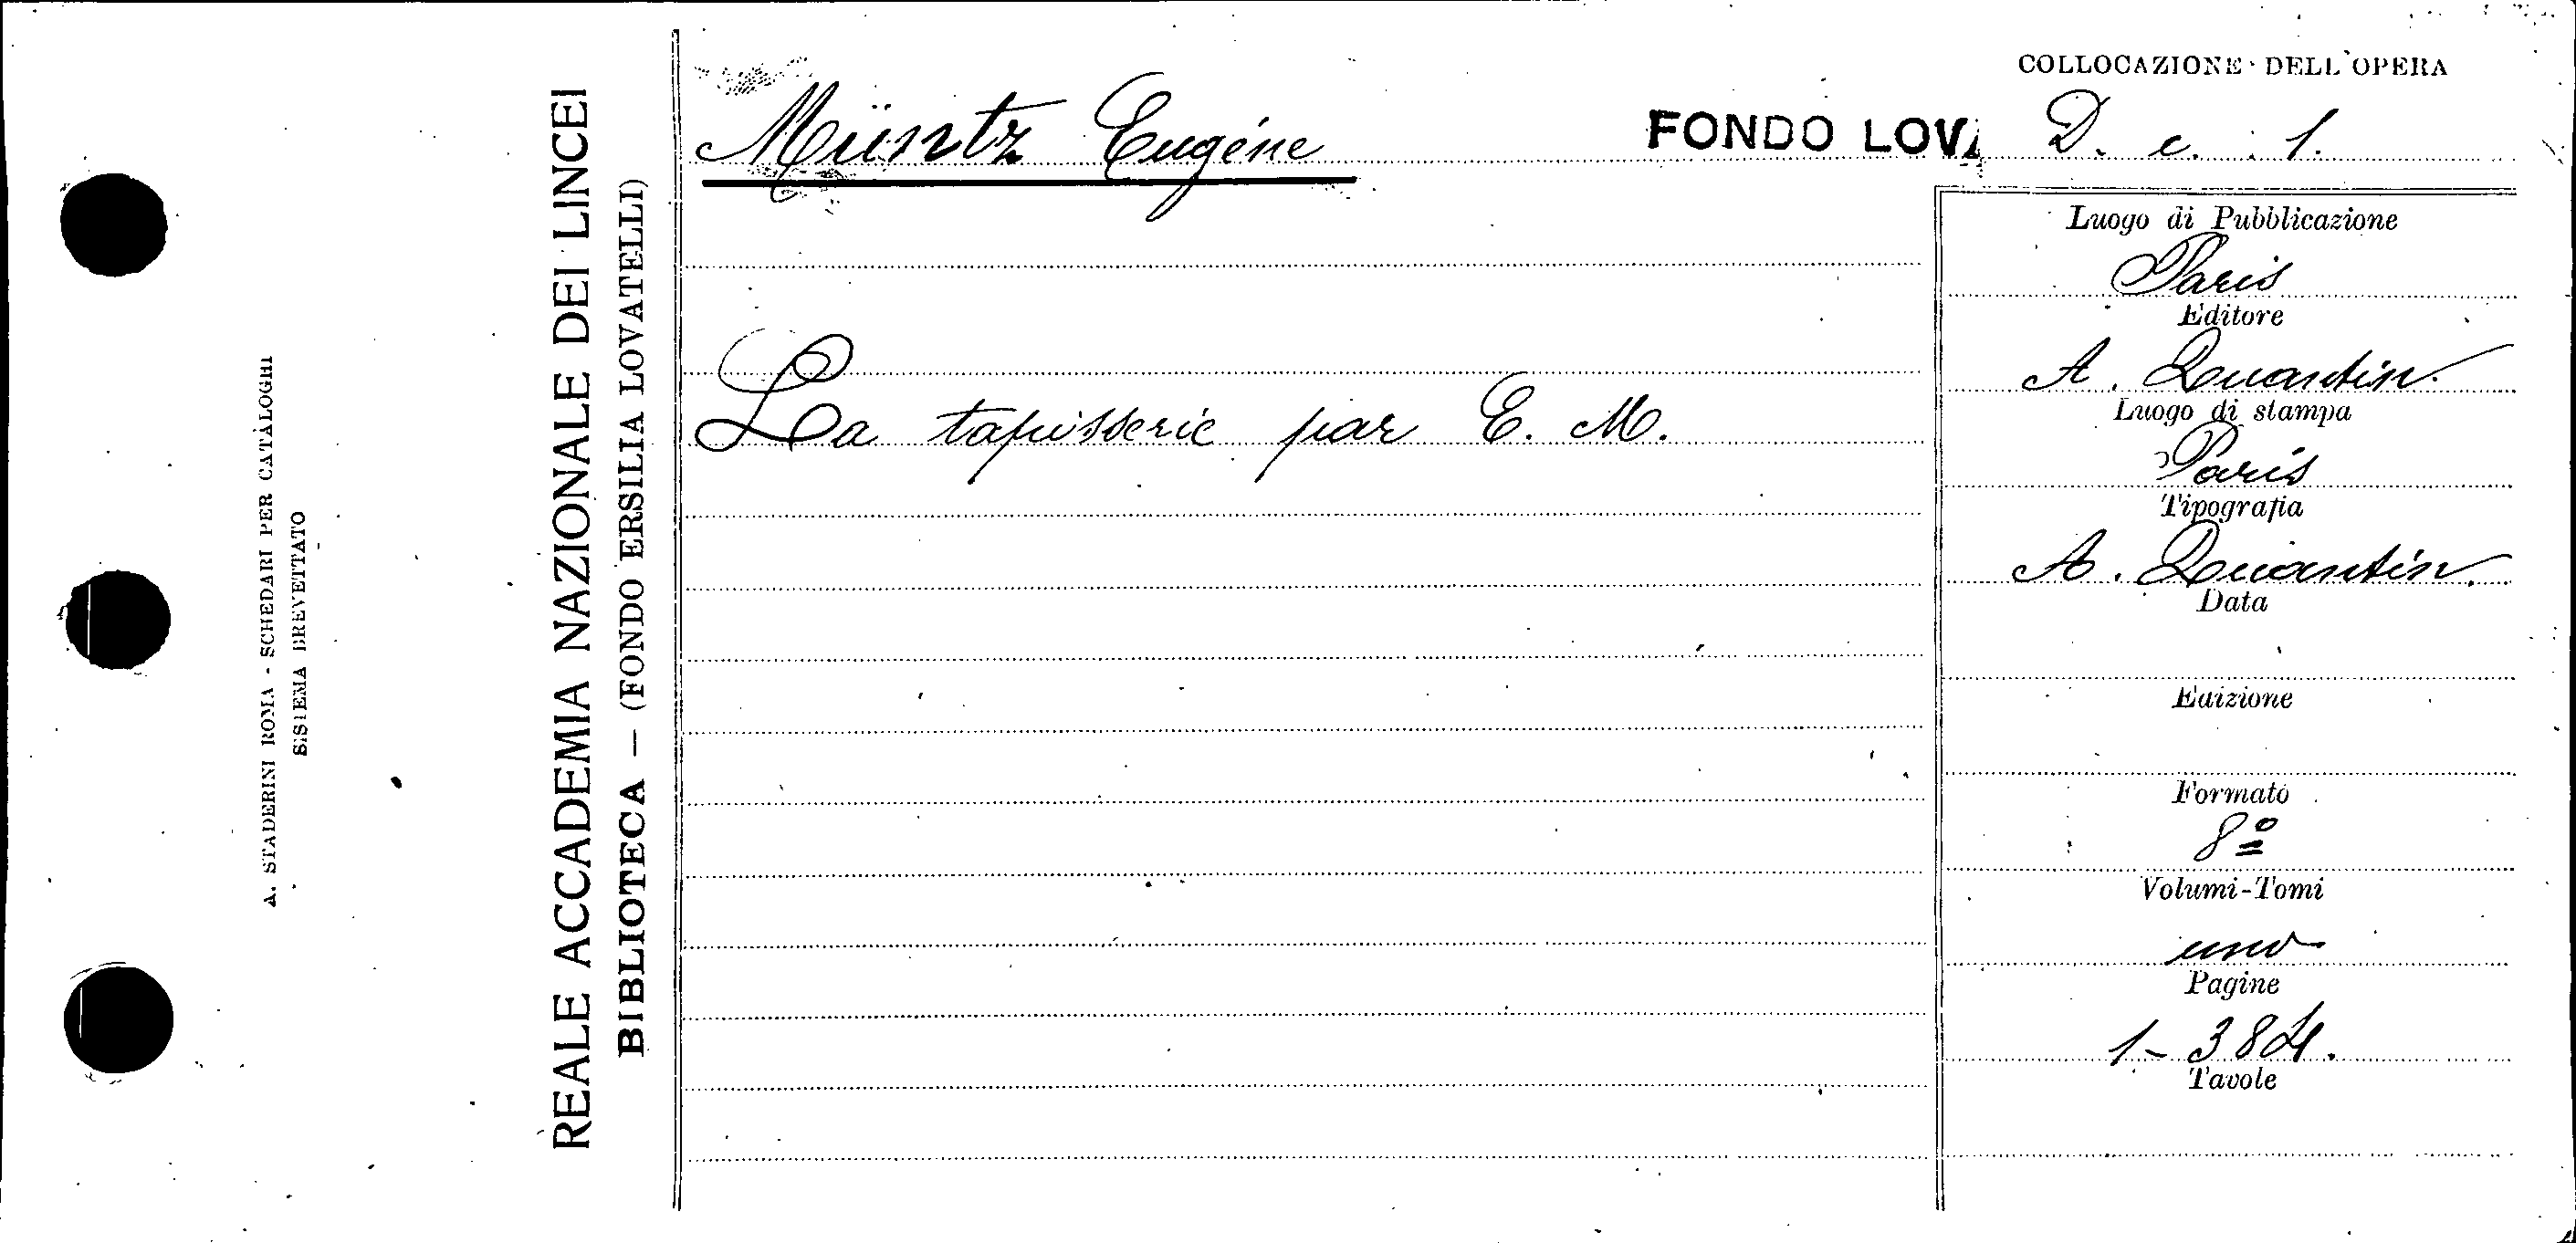 A. STADERINI ROMA - SCHEDARI PER CATALOGHI
SISTEMA BREVETTATO
REALE ACCADEMIA NAZIONALE DEI LINCEI
BIBLIOTECA — (FONDO ERSILIA LOVATELLI)
COLLOCAZIONE DELL'OPERA
Müntz Eugéne
FONDO LOVA
D. c. 1.
La tapisserie par E. M.
Luogo di Pubblicazione
Paris
Editore
A. Quantin.
Luogo di stampa
Paris
Tipografia
A. Quantin.
Data
Edizione
Formato
8º
Volumi-Tomi
uno
Pagine
1-384.
Tavole